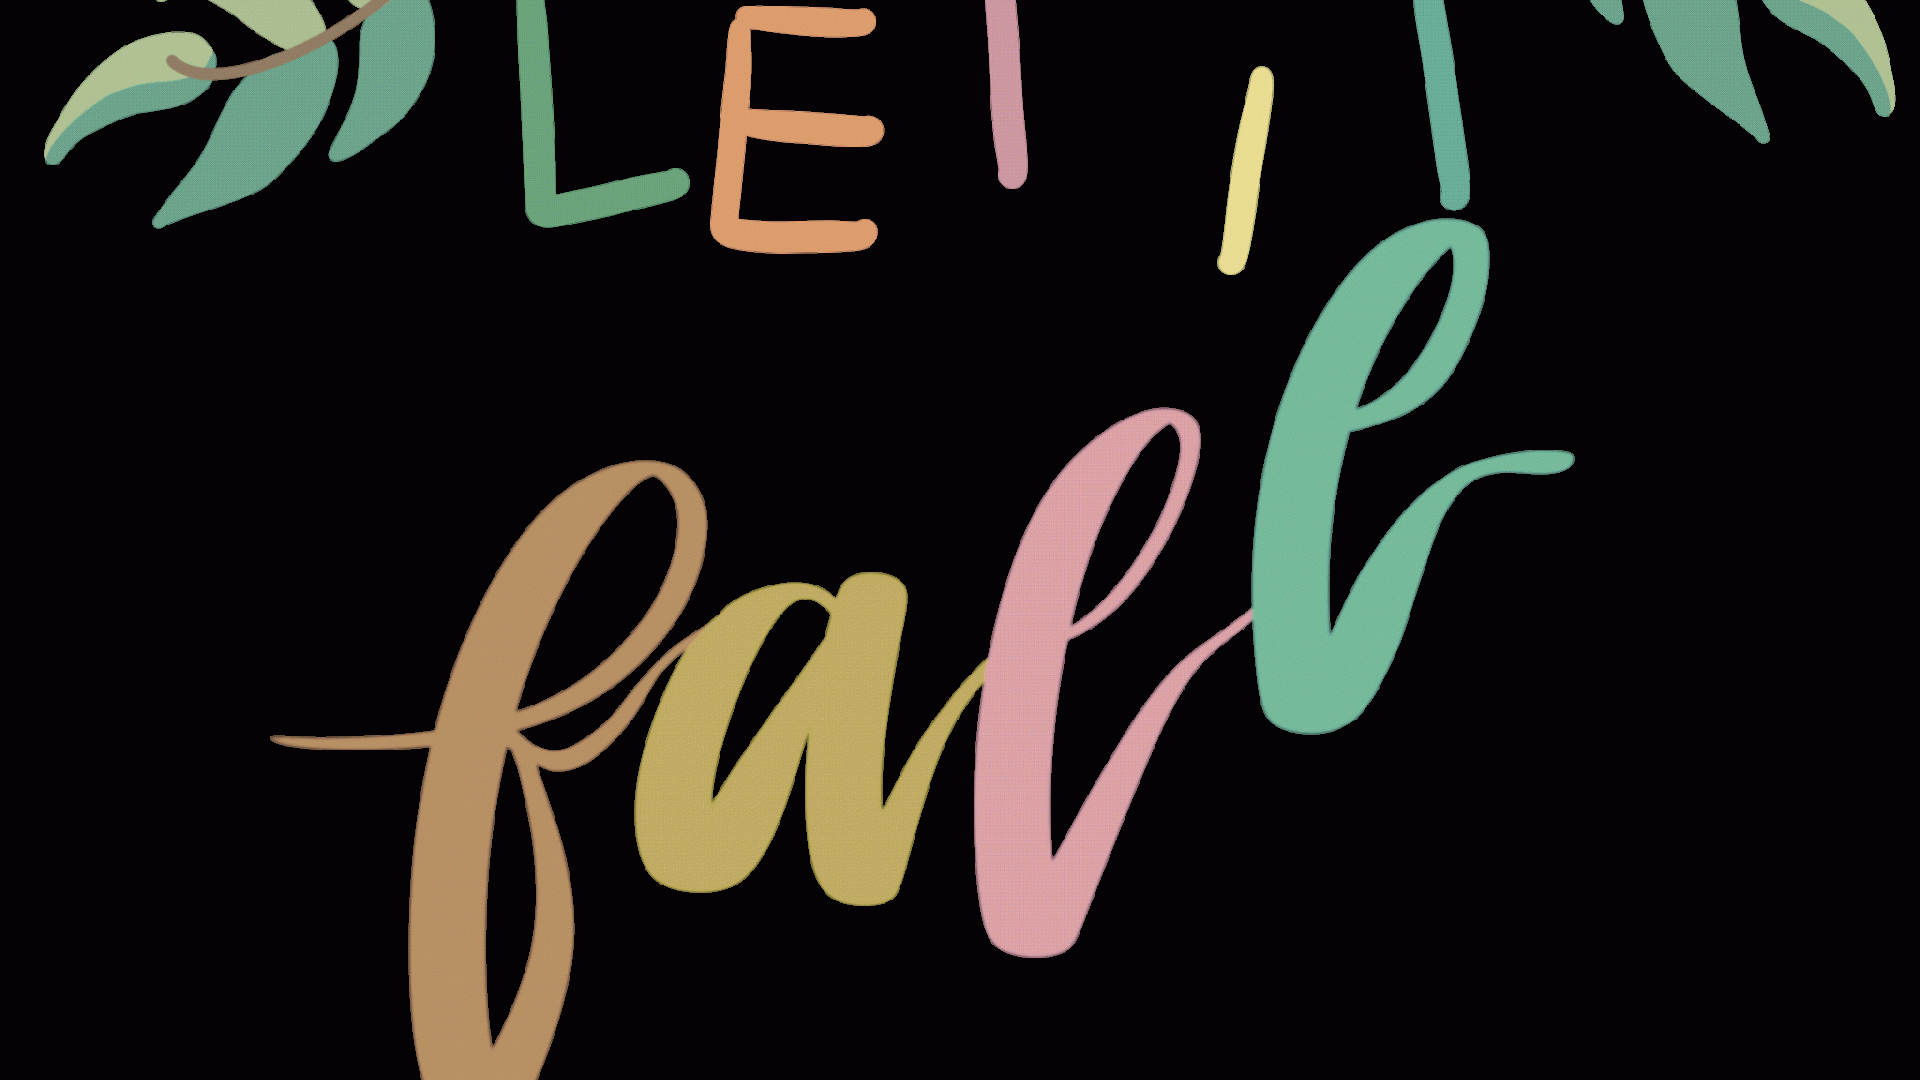 LET IT
fall